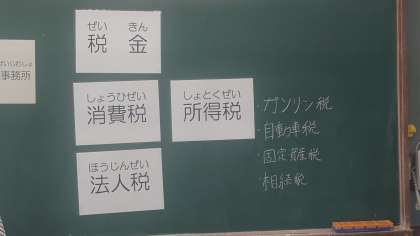 ぜい きん
税 金
ぜいむしょ
事務所
しょうひぜい
消費税
しょとくぜい
所得税
ほうじんぜい
法人税
・ガソリン税
・自動車税
・固定資産税
・相続税